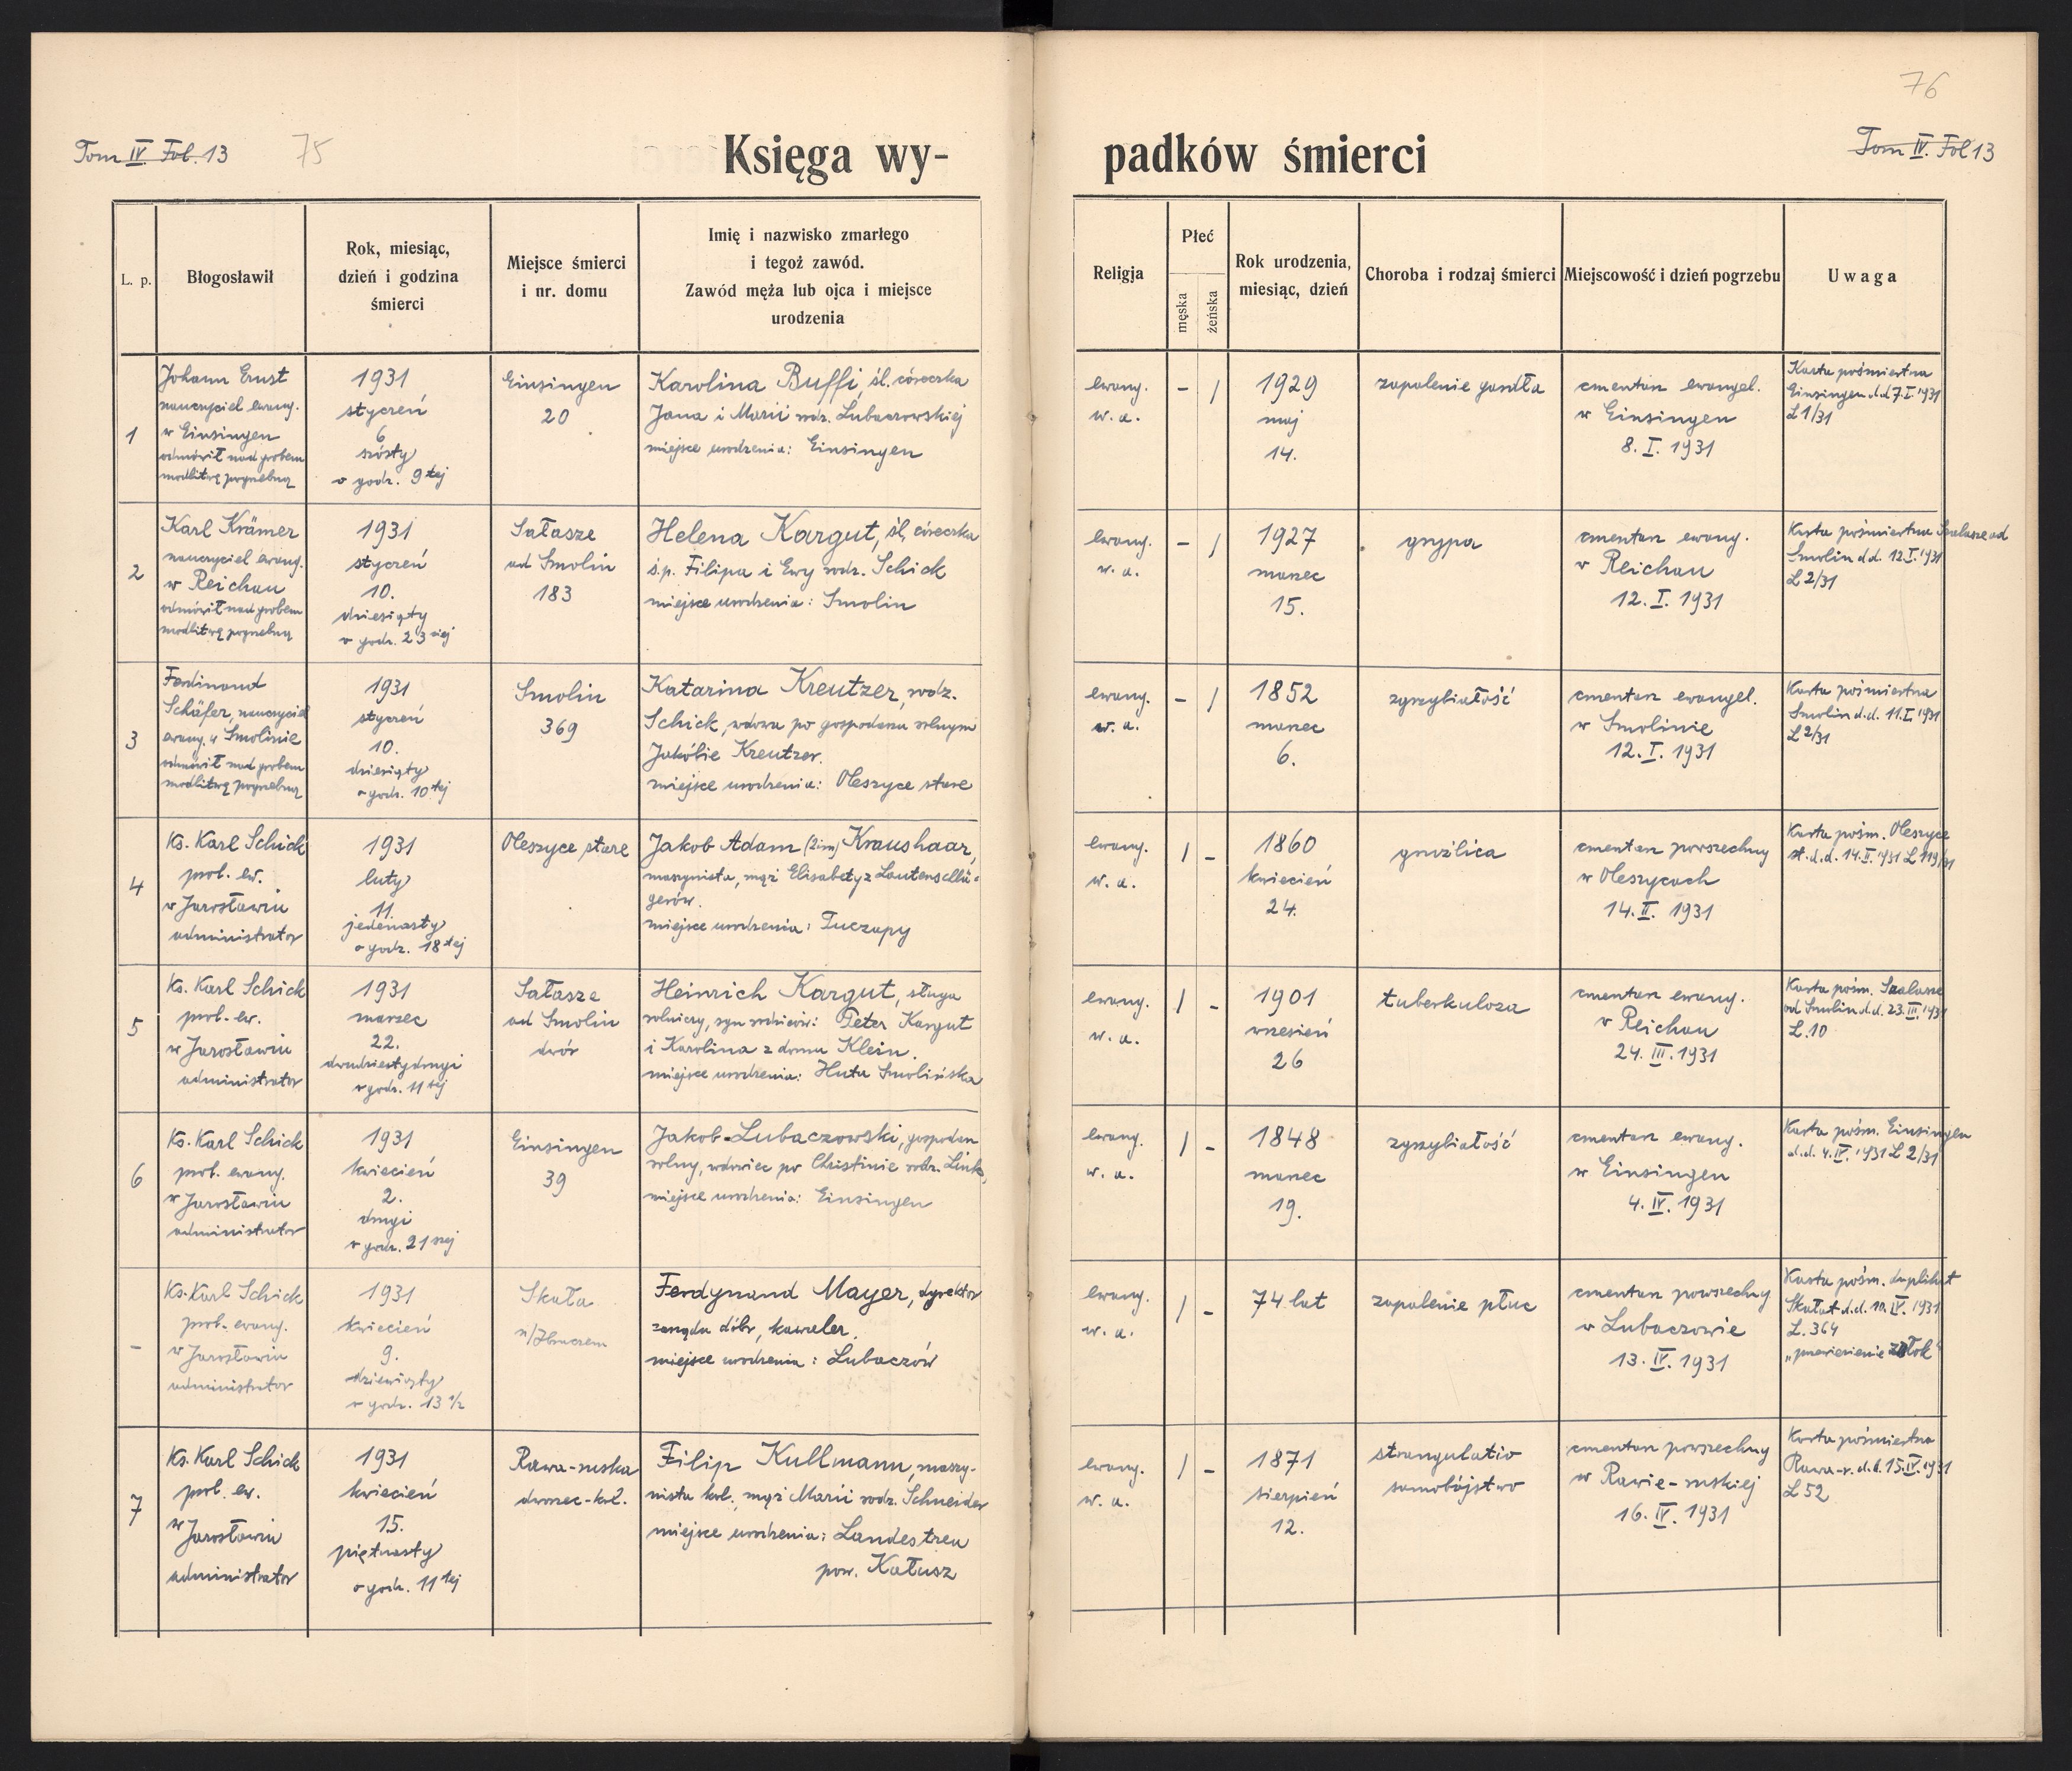 Tom IV. Fol. 13
75
Księga wy-
L. p.
Błogosławił
Rok, miesiąc,
dzień i godzina
śmierci
Miejsce śmierci
i nr. domu
Imię i nazwisko zmarłego
i tegoż zawód.
Zawód męża lub ojca i miejsce
urodzenia
1
Johann Ernst
nauczyciel ewang.
w Einsingen
odmówił nad grobem
modlitwę pogrzebną
1931
styczeń
6
szósty
o godz. 9tej
Einsingen
20
Karolina Buffi, śl. córeczka
Jana i Marii rodz. Lubaczowskiej
miejsce urodzenia: Einsingen
2
Karl Krämer
nauczyciel ewang.
w Reichau
odmówił nad grobem
modlitwę pogrzebną
1931
styczeń
10.
dziesiąty
o godz. 23ciej
Sałasze
ad Smolin
183
Helena Kargut, śl. córeczka
ś.p. Filipa i Ewy rodz. Schick
miejsce urodzenia: Smolin
3
Ferdinand
Schäfer, nauczyciel
ewang. w Smolinie
odmówił nad grobem
modlitwę pogrzebną
1931
styczeń
10.
dziesiąty
o godz. 10tej
Smolin
369
Katarina Kreutzer, rodz.
Schick, wdowa po gospodarzu rolnym
Jakóbie Kreutzer.
miejsce urodzenia: Oleszyce stare
4
Ks. Karl Schick
prob. ew.
w Jarosławiu
administrator
1931
luty
11.
jedenasty
o godz. 18tej
Oleszyce stare
Jakob Adam (2im) Kraushaar,
maszynista, mąż Elisabety z Lautenschlä-
gerów.
miejsce urodzenia: Tuczapy
5
Ks. Karl Schick
prob. ew.
w Jarosławiu
administrator
1931
marzec
22.
dwudziesty drugi
o godz. 11tej
Sałasze
ad Smolin
dwór
Heinrich Kargut, sługa
rolniczy, syn rodziców: Peter Kargut
i Karolina z domu Klein.
miejsce urodzenia: Huta Smolińska
6
Ks. Karl Schick
prob. ewang.
w Jarosławiu
administrator
1931
kwiecień
2.
drugi
o godz. 21szej
Einsingen
39
Jakob Lubaczowski, gospodarz
rolny, wdowiec po Christinie rodz. Link,
miejsce urodzenia: Einsingen
-
Ks. Karl Schick
prob. ewang.
w Jarosławiu
administrator
1931
kwiecień
9.
dziewiąty
o godz. 13 1/2
Skała
n/Zbruczem
Ferdynand Mayer, dyrektor
zarządu dóbr, kawaler.
miejsce urodzenia: Lubaczów
7
Ks. Karl Schick
prob. ew.
w Jarosławiu
administrator
1931
kwiecień
15.
piętnasty
o godz. 11tej
Rawa-ruska
dworzec-kol.
Filip Kullmann, maszy-
nista kol., mąż Marii rodz. Schneider
miejsce urodzenia: Landestreu
pow. Kałusz
76
Tom IV. Fol 13
padków śmierci
Religja
Płeć
męska
żeńska
Rok urodzenia,
miesiąc, dzień
Choroba i rodzaj śmierci
Miejscowość i dzień pogrzebu
Uwaga
ewang.
w. a.
- /
1929
maj
14.
zapalenie gardła
cmentarz ewangel.
w Einsingen
8. I. 1931
Karta pośmiertna
Einsingen d.d 7. I. 1931
L 1/31
ewang.
w. a.
- /
1927
marzec
15.
grypa
cmentarz ewang.
w Reichau
12. I. 1931
Karta pośmiertna Sałasze ad
Smolin d.d. 12. I. 1931
L 2/31
ewang.
w. a.
- /
1852
marzec
6.
zgrzybiałość
cmentarz ewangel.
w Smolinie
12. I. 1931
Karta pośmiertna
Smolin d.d. 11. I. 1931
L 2/31
ewang.
w. a.
/ -
1860
kwiecień
24.
gruźlica
cmentarz powszechny
w Oleszycach
14. II. 1931
Karta pośm. Oleszyce
st. d.d. 14. II. 1931 L 119/31
ewang.
w. a.
/ -
1901
wrzesień
26
tuberkuloza
cmentarz ewang.
w Reichau
24. III. 1931
Karta pośm. Saalasze
ad Smolin d.d. 23. III. 1931
L. 10
ewang.
w. a.
/ -
1848
marzec
19.
zgrzybiałość
cmentarz ewang.
w Einsingen
4. IV. 1931
Karta pośm. Einsingen
d.d. 4. IV. 1931 L 2/31
ewang.
w. a.
/ -
74 lat
zapalenie płuc
cmentarz powszechny
w Lubaczowie
13. IV. 1931
Karta pośm. duplikat
Skałat d.d. 10. IV. 1931
L. 364
„przewiezienie zwłok"
ewang.
w. a.
/ -
1871
sierpień
12.
strangulatio
samobójstwo
cmentarz powszechny
w Rawie-ruskiej
16. IV. 1931
Karta pośmiertna
Rawa-r. d.d. 15. IV. 1931
L 52